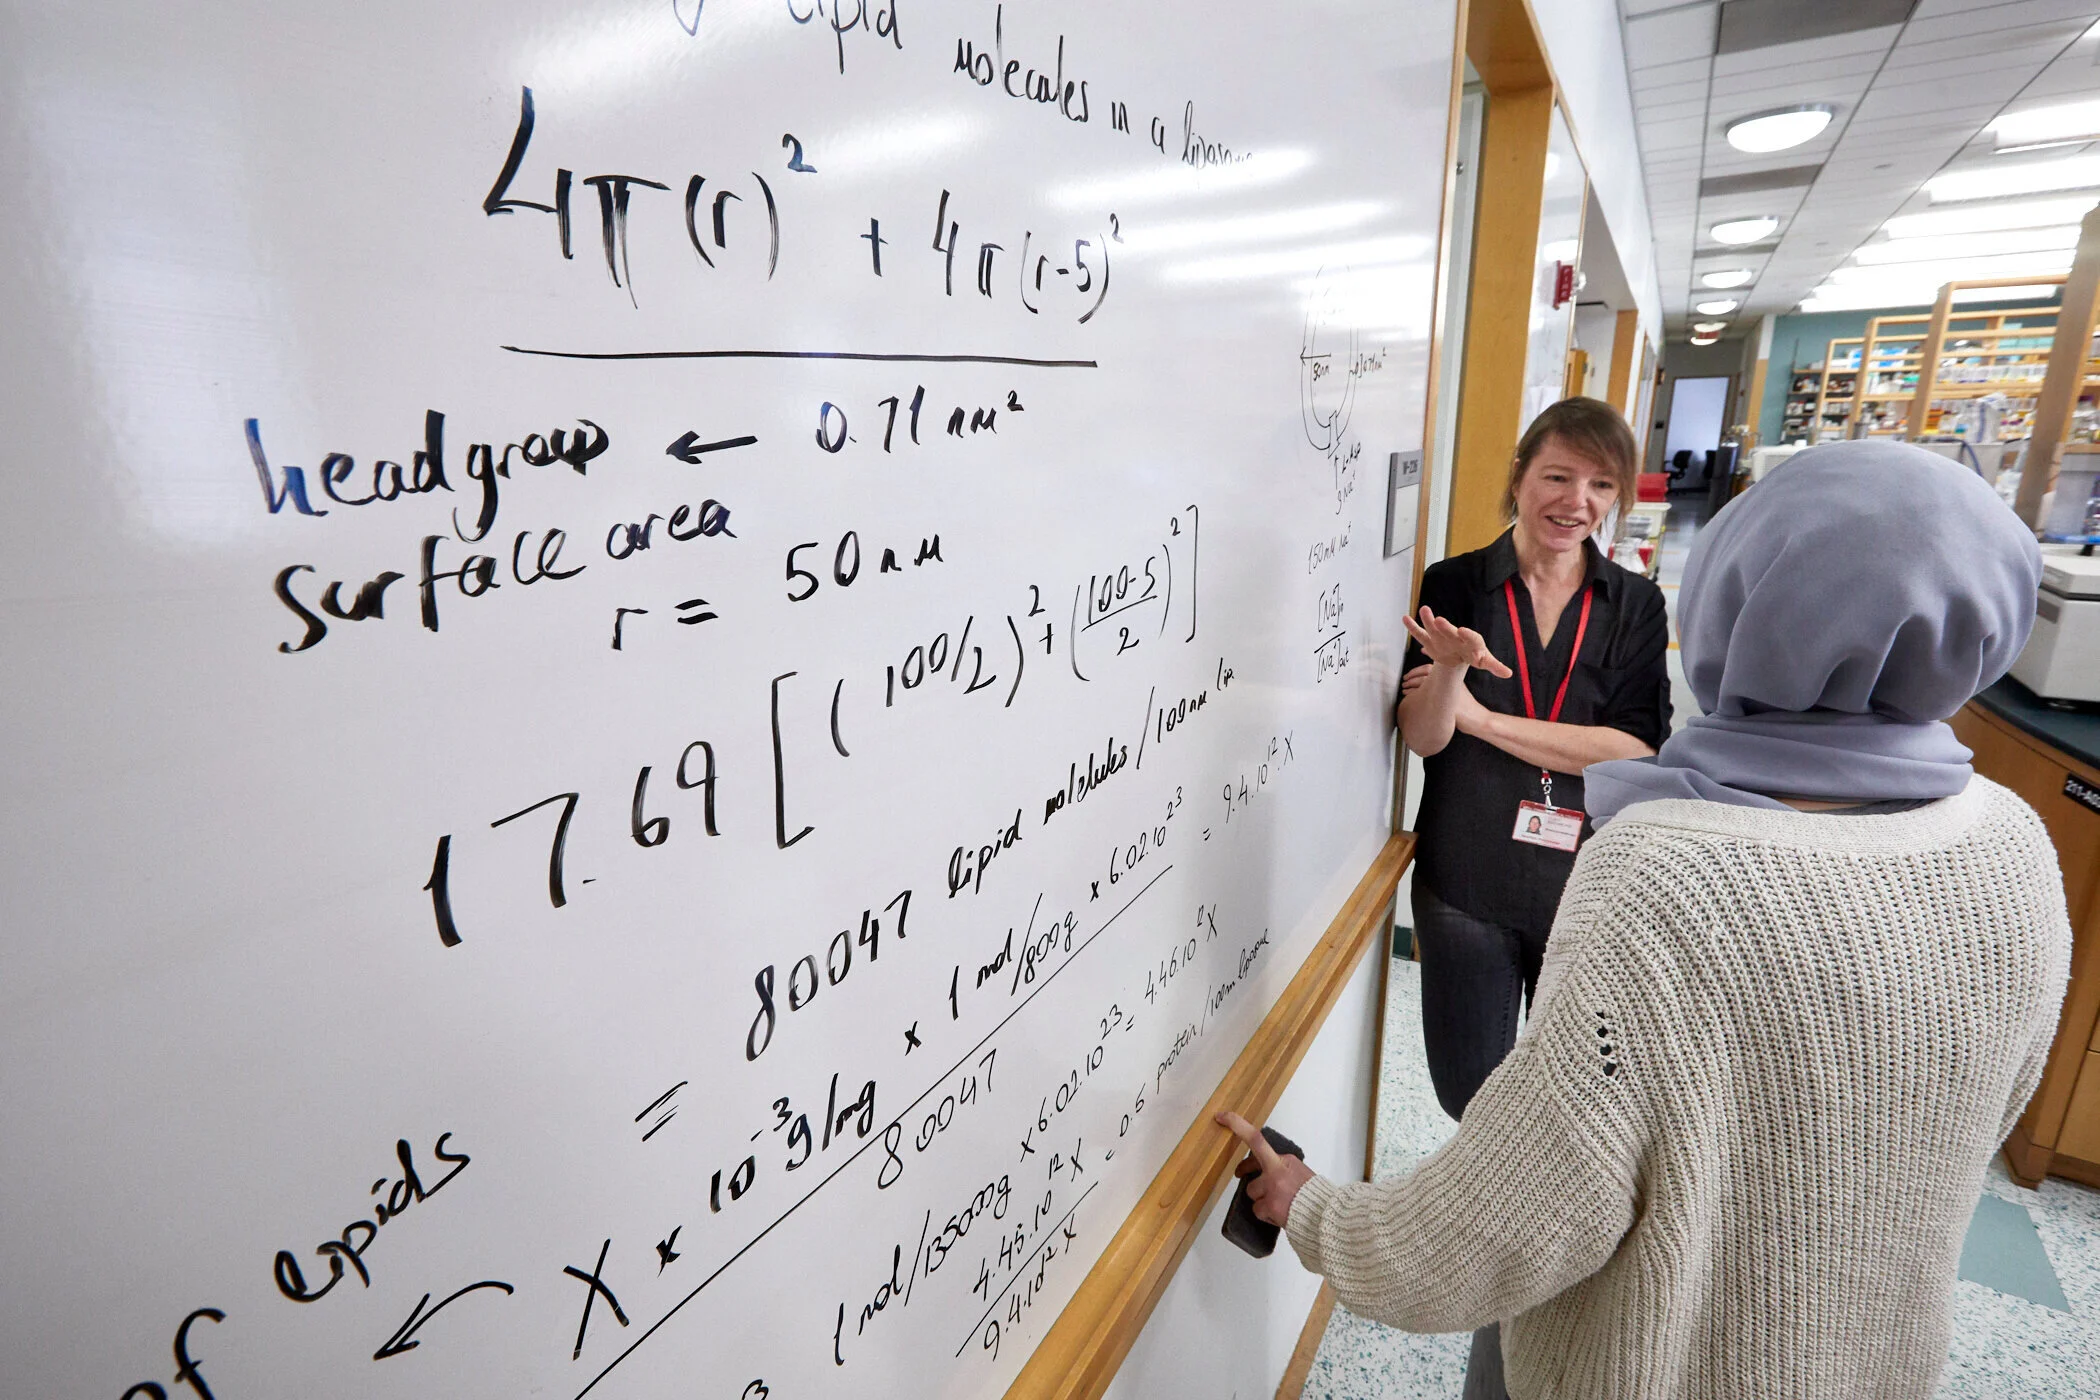 lipid molecules in a liposome
4π(r)² + 4π(r-5)²
headgroup ← 0.71 nm²
surface area
r = 50 nm
17.69 [(100/2)² + (100-5/2)²]
= 80047 lipid molecules/100nm lip.
X × 10⁻³g/mg × 1 mol/800g × 6.02.10²³ = 9.4.10¹² X
80047
of lipids
1 mol/13500g × 6.02.10²³ = 4.46.10¹² X
4.45.10¹² X = 0.5 protein/100nm liposome
9.4.10¹² X
50nm
0.71nm²
150mM Na⁺
[Na]in
[Na⁺]out